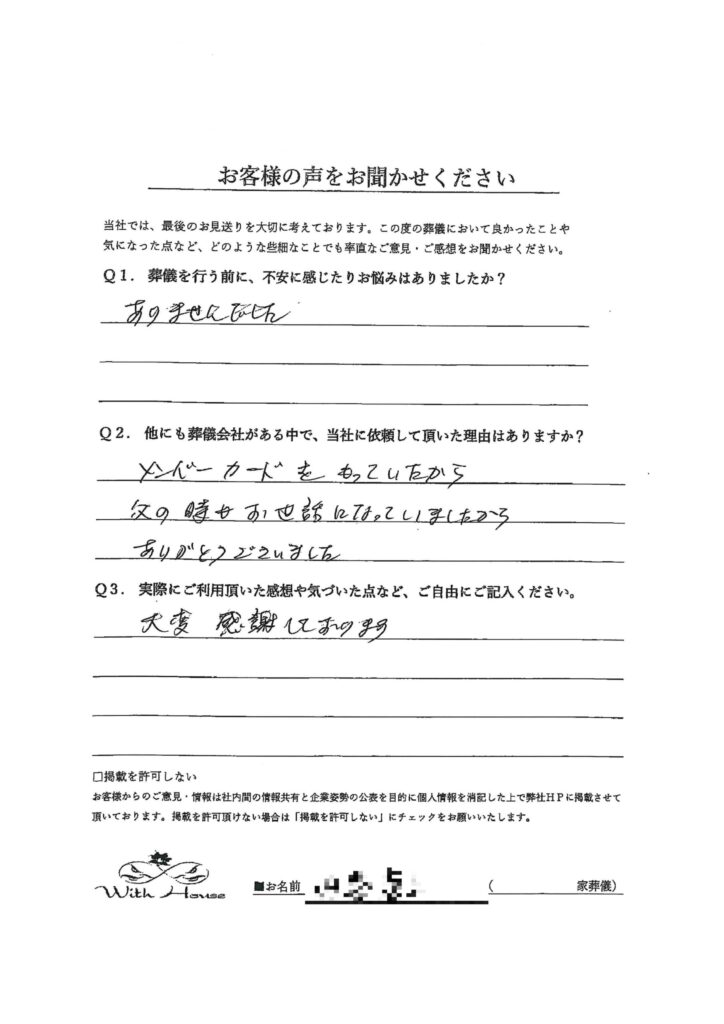 お客様の声をお聞かせください
当社では、最後のお見送りを大切に考えております。この度の葬儀において良かったことや
気になった点など、どのような些細なことでも率直なご意見・ご感想をお聞かせください。
Q1. 葬儀を行う前に、不安に感じたりお悩みはありましたか？
ありませんでした
Q2. 他にも葬儀会社がある中で、当社に依頼して頂いた理由はありますか？
メンバーカードをもっていたから
父の時もお世話になっていましたから
ありがとうございました
Q3. 実際にご利用頂いた感想や気づいた点など、ご自由にご記入ください。
大変 感謝しております
□掲載を許可しない
お客様からのご意見・情報は社内間の情報共有と企業姿勢の公表を目的に個人情報を消記した上で弊社HPに掲載させて
頂いております。掲載を許可頂けない場合は「掲載を許可しない」にチェックをお願いいたします。
With House
■お名前 ( 家葬儀)